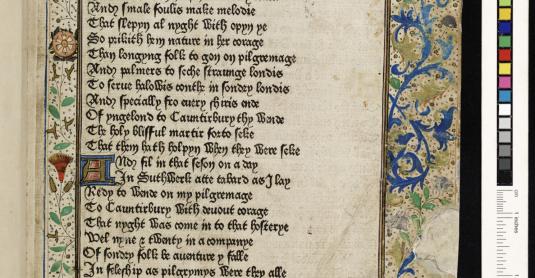 And smale foulis make melodie
That slepyn al nyght with oppn ye
So prikith hem nature in her corage
Than longyng folk to gon on pilgremage
And palmers to seche straunge londis
To serue halowis couth in sondry londis
And specially fro euery shiris ende
Of yngelond to Cauntirbury thy wende
The holy blisful martir forto seke
That them hath holpyn when they were seke
And fil in that seson on a day
In Suthwerk atte tabard as I lay
Redy to wende on my pilgremage
To Cauntirbury with deuout corage
That nyght was come in to that hosterye
Wel nyne & twenty in a companye
Of sondry folk be auenture y falle
In feleship as pilgrymys were they alle
cm
inches